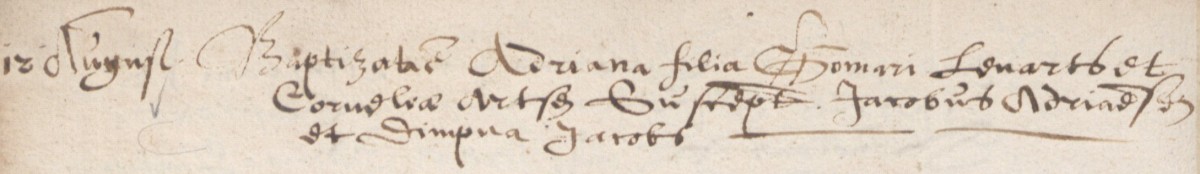 12 August Baptizata ē Adriana filia Gomari Lenarts et
Corneliæ Artsē Suscept. Jacobus Adriaēsen
et Dimpna Jacobs